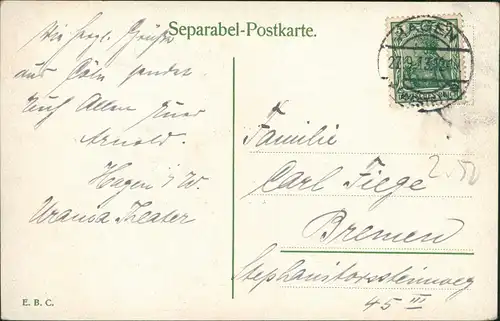 Separabel-Postkarte.
HAGEN
Die herzl. Grüße
aus Cöln sendet
Euch Allen Euer
Arnold.
Hagen i/W.
Urania Theater
Familie
Carl Fiege
Bremen
Stephanitorssteinweg
45 III
2.50
E. B. C.